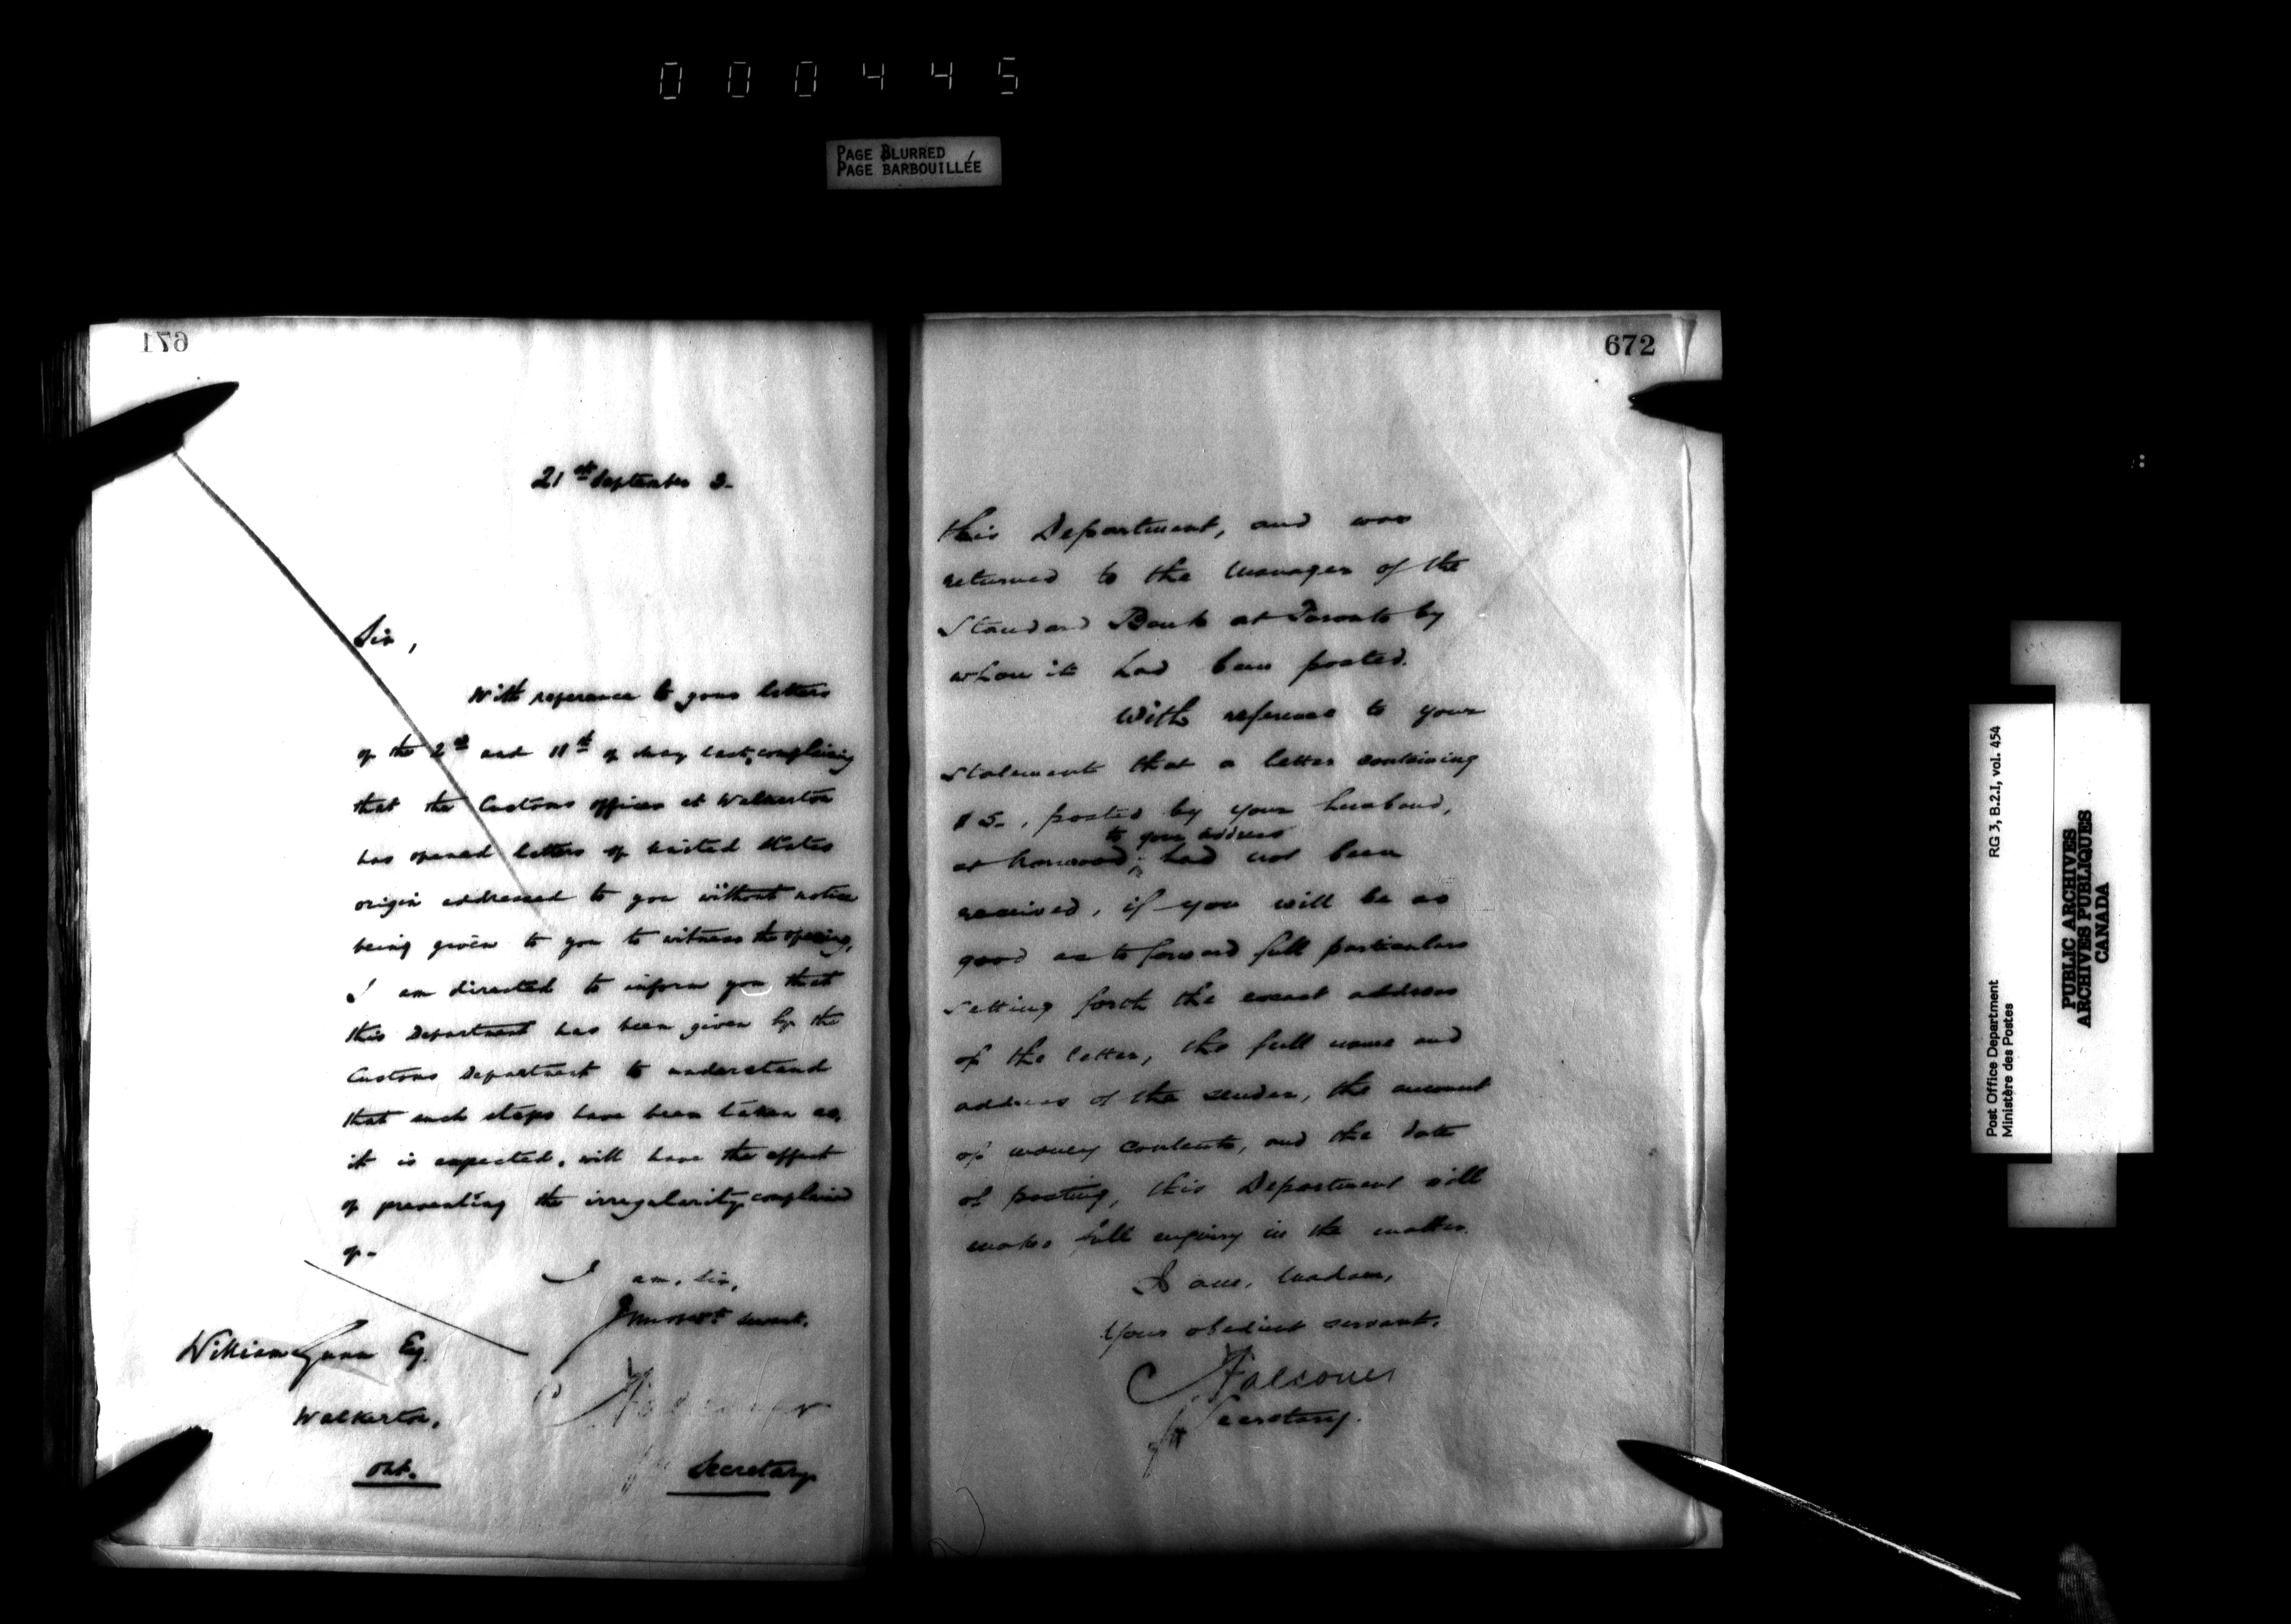 000445
PAGE BLURRED
PAGE BARBOUILLÉE
671
21st September 3.
Sir,
With reference to your letters
of the 2nd and 11th of May last, complaining
that the Customs officer at Walkerton
has opened letters of United States
origin addressed to you without notice
being given to you to witness the opening,
I am directed to inform you that
this Department has been given by the
Customs Department to understand
that such steps have been taken as,
it is expected, will have the effect
of preventing the irregularity complained
of-
I am, Sir,
servant,
William Gunn Esq.
Walkerton,
Ont.
Secretary
672
this Department, and was
returned to the Manager of the
Standard Bank at Toronto by
whom it had been posted.
With reference to your
statement that a letter containing
$5-, posted by your husband,
to your address
at Norwood, had not been
received, if you will be so
good as to forward full particulars
setting forth the exact address
of the letter, the full name and
address of the sender, the amount
of money contents, and the date
of posting, this Department will
make full enquiry in the matter.
I am, Madam,
Your obedient servant,
Falconer
for Secretary.
Post Office Department
Ministère des Postes
RG 3, B.2.I, vol. 454
PUBLIC ARCHIVES
ARCHIVES PUBLIQUES
CANADA